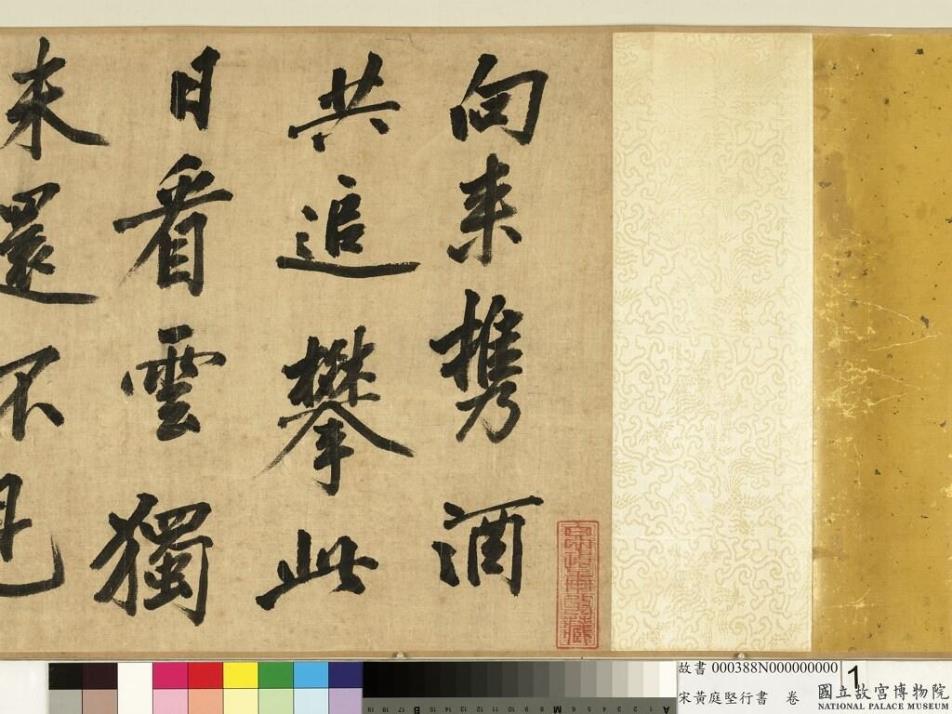 向来携酒
共追攀此
日看雲獨
来還不見
故書 000388N000000000
1
宋黃庭堅行書 卷
國立故宮博物院
NATIONAL PALACE MUSEUM